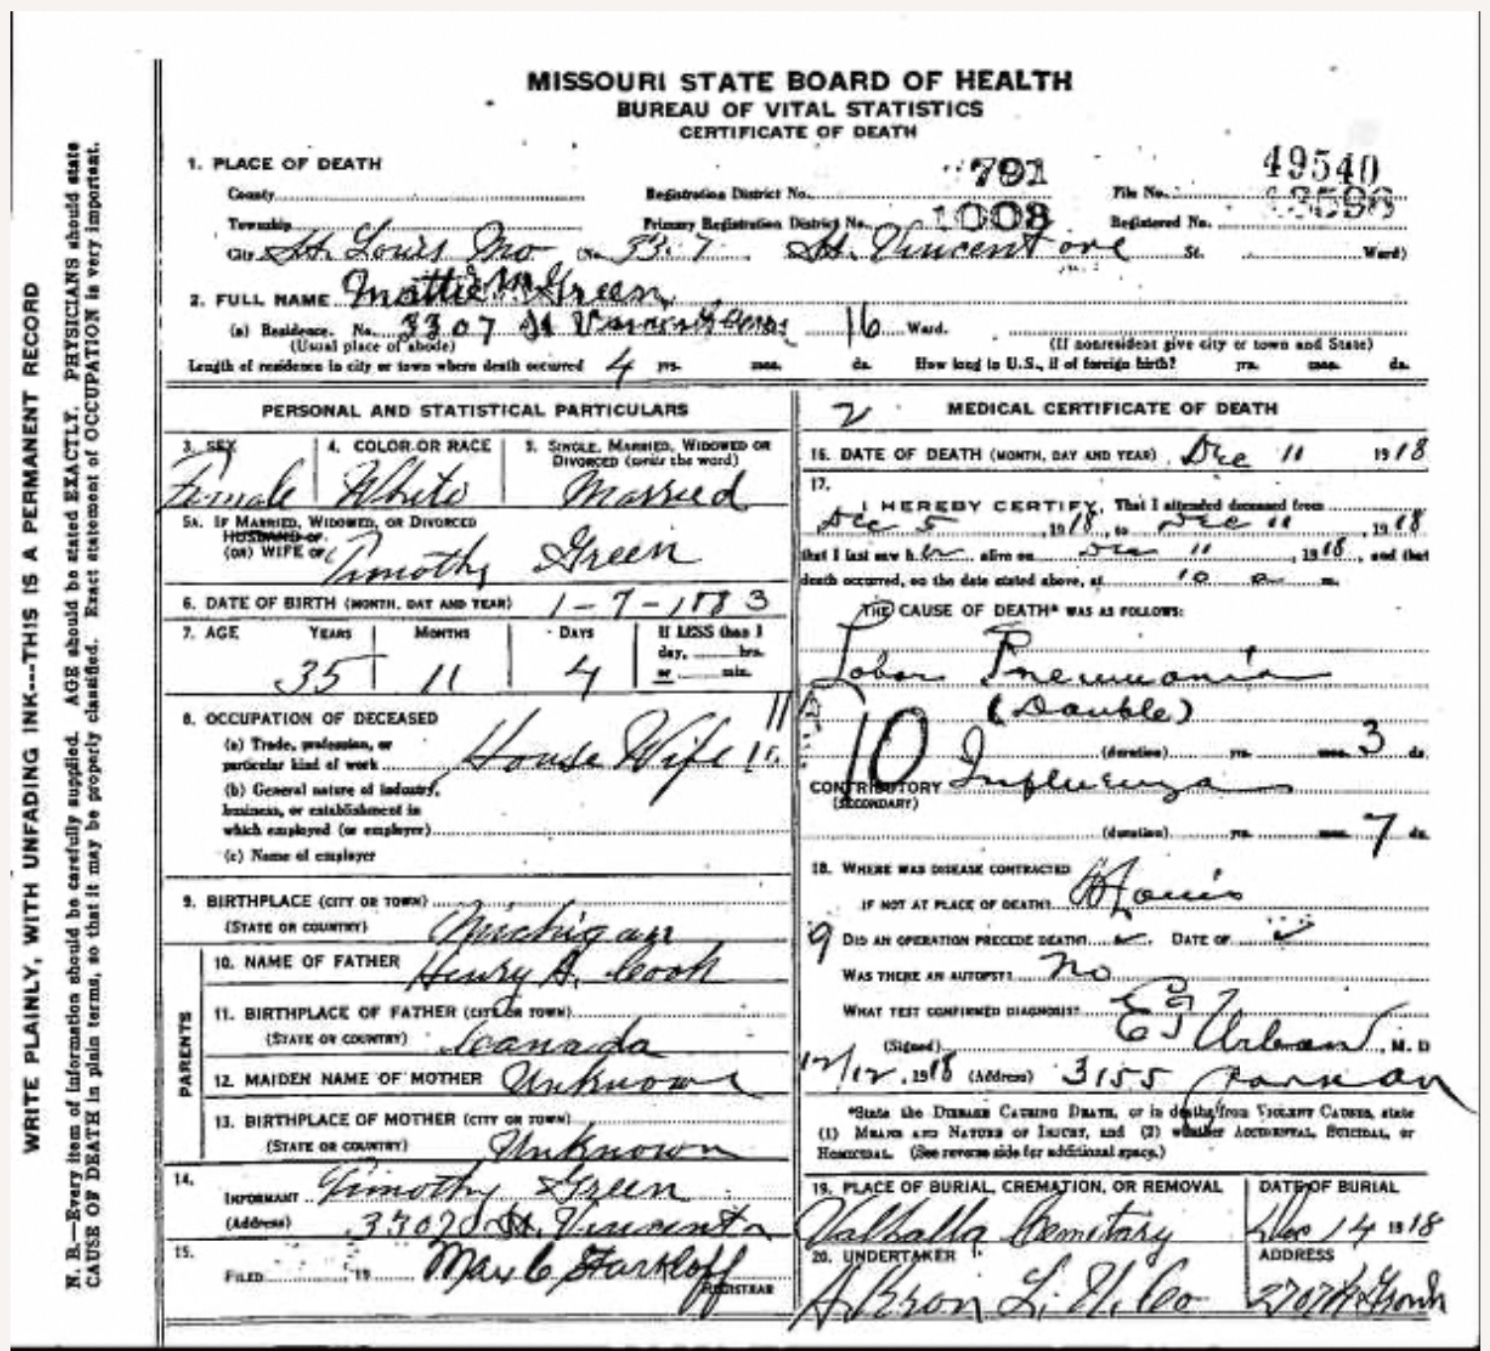 MISSOURI STATE BOARD OF HEALTH
BUREAU OF VITAL STATISTICS
CERTIFICATE OF DEATH
1. PLACE OF DEATH
County
Registration District No. 791
File No. 49540
Township
Primary Registration District No. 1003
Registered No.
City St. Louis Mo (No. St. Vincent ave St. Ward)
2. FULL NAME Mattie M. Green
(a) Residence. No. 3307 St 16 Ward.
(Usual place of abode) (If nonresident give city or town and State)
Length of residence in city or town where death occurred 4 yrs. mos. ds. How long in U.S., if of foreign birth? yrs. mos. ds.
PERSONAL AND STATISTICAL PARTICULARS
3. SEX 4. COLOR OR RACE 5. SINGLE, MARRIED, WIDOWED OR DIVORCED (write the word)
Female White Married
5A. IF MARRIED, WIDOWED, OR DIVORCED
HUSBAND OF
(OR) WIFE OF Timothy Green
6. DATE OF BIRTH (MONTH, DAY AND YEAR) 1-7-1883
7. AGE YEARS MONTHS DAYS If LESS than 1
day, hrs.
or min.
35 11 4
8. OCCUPATION OF DECEASED
(a) Trade, profession, or
particular kind of work House Wife
(b) General nature of industry,
business, or establishment in
which employed (or employer)
(c) Name of employer
9. BIRTHPLACE (CITY OR TOWN)
(STATE OR COUNTRY) Michigan
PARENTS
10. NAME OF FATHER Henry A. Cook
11. BIRTHPLACE OF FATHER (CITY OR TOWN)
(STATE OR COUNTRY) Canada
12. MAIDEN NAME OF MOTHER Unknown
13. BIRTHPLACE OF MOTHER (CITY OR TOWN)
(STATE OR COUNTRY) Unknown
14.
INFORMANT Timothy Green
(Address) 3307 St. Vincent
15.
FILED 19 Max C Starkloff
REGISTRAR
2 MEDICAL CERTIFICATE OF DEATH
16. DATE OF DEATH (MONTH, DAY AND YEAR) Dec 11 1918
17.
I HEREBY CERTIFY, That I attended deceased from
Dec 5, 1918, to Dec 11 1918
that I last saw her alive on Dec 11, 1918, and that
death occurred, on the date stated above, at 10 a m.
THE CAUSE OF DEATH* WAS AS FOLLOWS:
Lobar Pneumonia
(Double)
10
(duration) yrs. mos. 3 ds.
CONTRIBUTORY Influenza
(SECONDARY)
(duration) yrs. mos. 7 ds.
18. WHERE WAS DISEASE CONTRACTED
IF NOT AT PLACE OF DEATH? St Louis
9 DID AN OPERATION PRECEDE DEATH? DATE OF
WAS THERE AN AUTOPSY? no
WHAT TEST CONFIRMED DIAGNOSIS?
(Signed) Urban, M. D
12/12, 1918 (Address) 3155
*State the DISEASE CAUSING DEATH, or in deaths from VIOLENT CAUSES, state
(1) MEANS AND NATURE OF INJURY, and (2) whether ACCIDENTAL, SUICIDAL, or
HOMICIDAL. (See reverse side for additional space.)
19. PLACE OF BURIAL, CREMATION, OR REMOVAL DATE OF BURIAL
Valhalla Cemitary Dec 14 1918
20. UNDERTAKER ADDRESS
A Kron L. U. Co 2707 N Grand
WRITE PLAINLY, WITH UNFADING INK---THIS IS A PERMANENT RECORD
N. B.—Every item of information should be carefully supplied. AGE should be stated EXACTLY. PHYSICIANS should state
CAUSE OF DEATH in plain terms, so that it may be properly classified. Exact statement of OCCUPATION is very important.